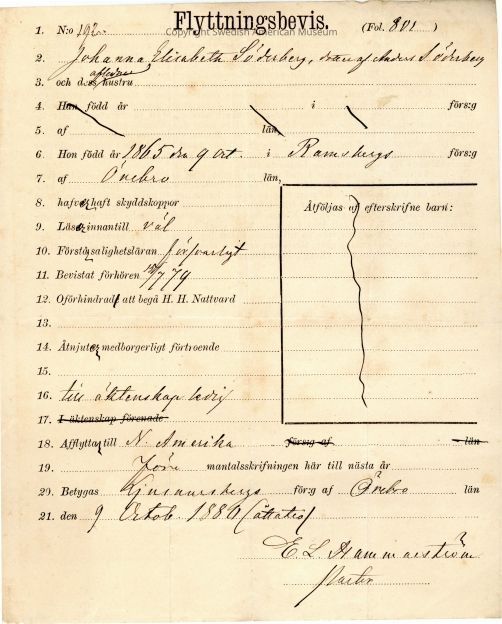 Flyttningsbevis.
Copyright Swedish American Museum
1. N:o 192. (Fol. 801)
2. Johanna Elisabeth Söderberg, dotter af Anders Söderberg
3. och dess aflidne hustru
4. Han född år i förs:g
5. af län
6. Hon född år 1865 den 9 Oct. i Ramsbergs förs:g
7. af Örebro län,
8. hafver haft skyddskoppor
9. Läser innantill väl
10. Förstår salighetsläran försvarligt
11. Bevistat förhören
12. Oförhindrad att begå H. H. Nattvard
13.
14. Åtnjuter medborgerligt förtroende
15.
16. till äktenskap ledig
17. I äktenskap förenade
18. Afflyttar till N. Amerika förs:g af län
19. före mantalsskrifningen här till nästa år
20. Betygas Ljusnarsbergs för:g af Örebro län
21. den 9 Octob. 1886 (åttatio
E. L. Hammarström
Pastor
Åtföljas af efterskrifne barn: